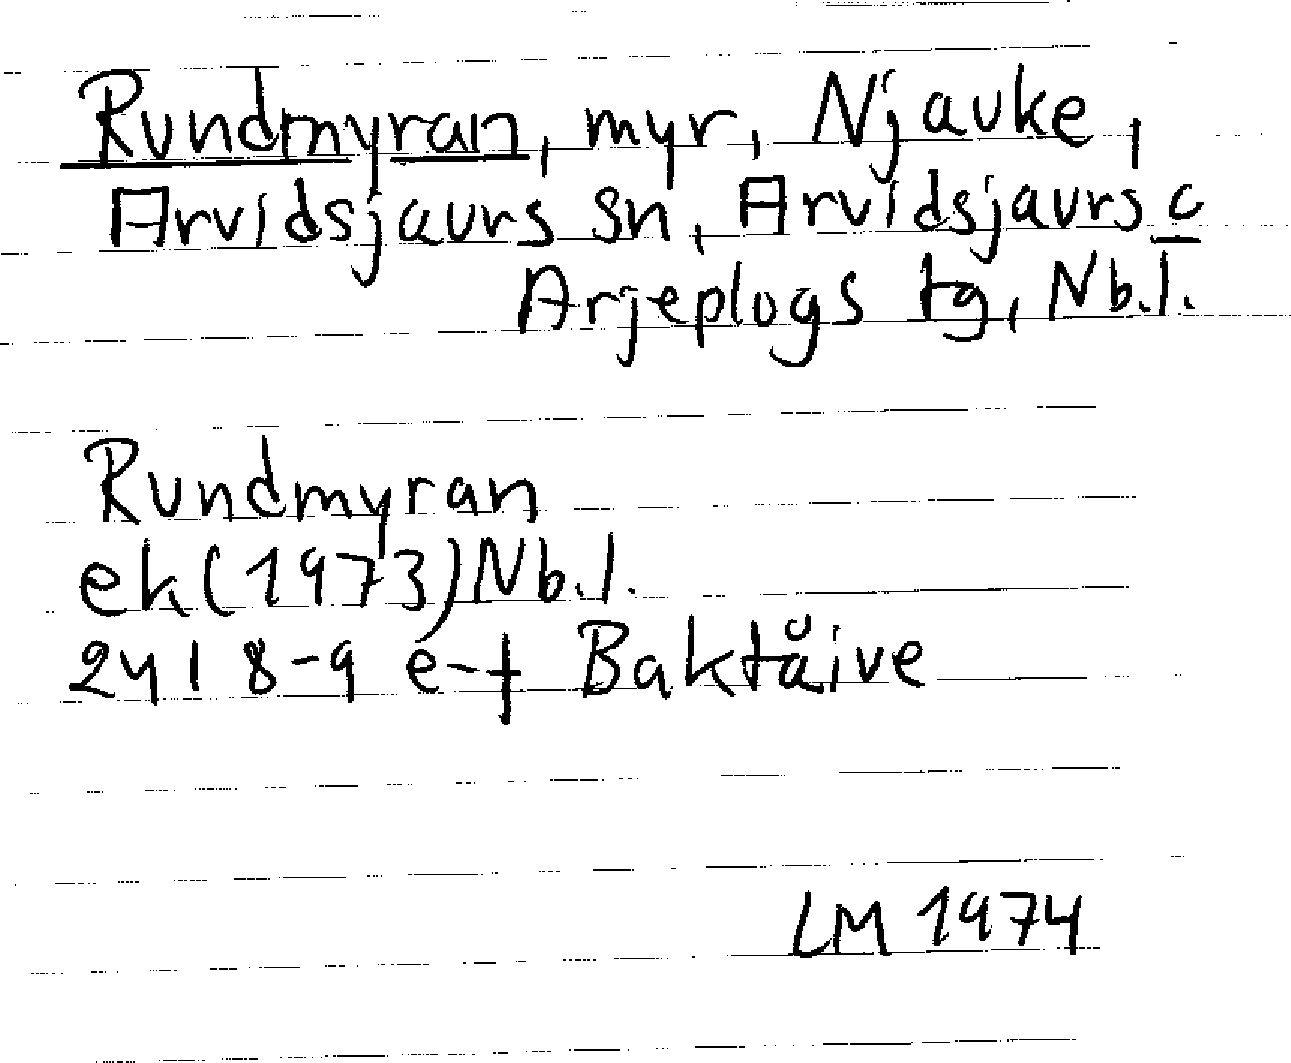 Rundmyran, myr, Njauke,
Arvidsjaurs sn, Arvidsjaurs o
Arjeplogs tg, Nb.l.
Rundmyran
ek (1973) Nb.l.
2418-9 e-f Baktåive
LM 1974